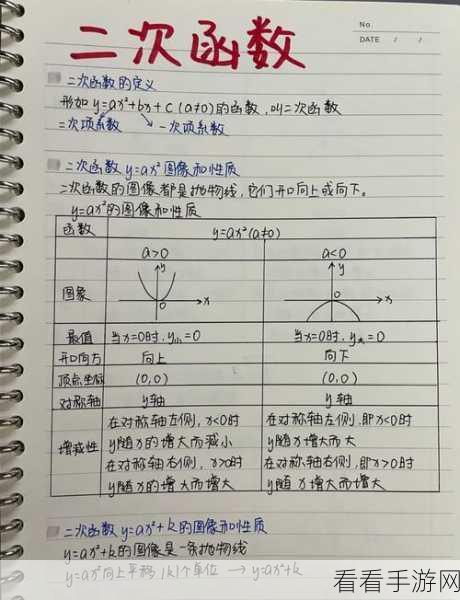 二次函数
No.
DATE / /
二次函数的定义
形如 y=ax²+bx+c (a≠0)的函数,叫二次函数
二次项系数 一次项系数
二次函数 y=ax²图像和性质
二次函数的图像都是抛物线,它们开口向上或向下。
y=ax²的图像和性质
函数 y=ax²(a≠0)
a>0 a<0
图象 y x 0 y x 0
最值 当x=0时,y小=0 当x=0时,y大=0
开口向方 向上 向下
顶点坐标 (0,0) (0,0)
对称轴 y轴 y轴
增减性
在对称轴左侧,x<0时
y随x的增大而减小
在对称轴右侧,x>0时
y随x的增大而增大
在对称轴左侧,即x<0时
y随x增大而大
在对称轴右侧,即x>0时
y随x增大而增大
二次函数 y=ax²+k的图像和性质
y=ax²+k的图像是一条抛物线
y=ax²向上平移|k|个单位 → y=ax²+k
看看手游网